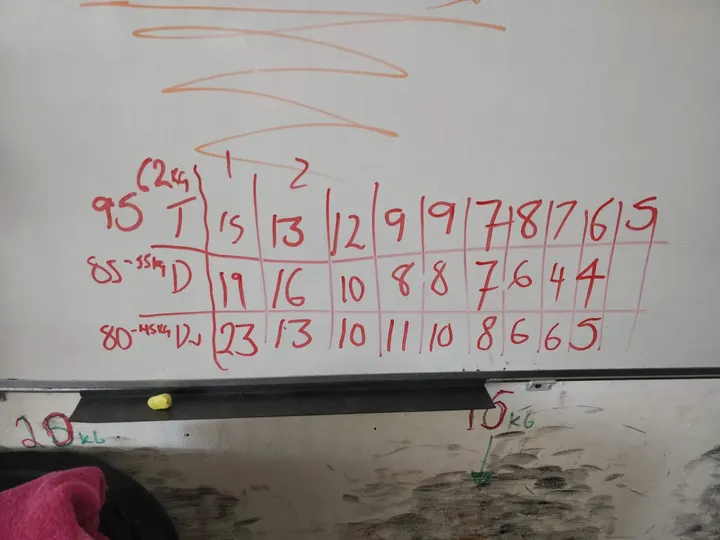 1 2
62KG
95 T 15 13 12 9 9 7 8 7 6 5
85-55KG D 19 16 10 8 8 7 6 4 4
80-45KG Dw 23 13 10 11 10 8 6 6 5
20KG
15KG